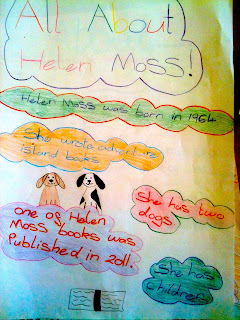 All About
Helen Moss!
Helen Moss was born in 1964
She wrote adventure
island books
She has two
dogs
one of Helen
Moss books was
Published in 2011.
She has
children